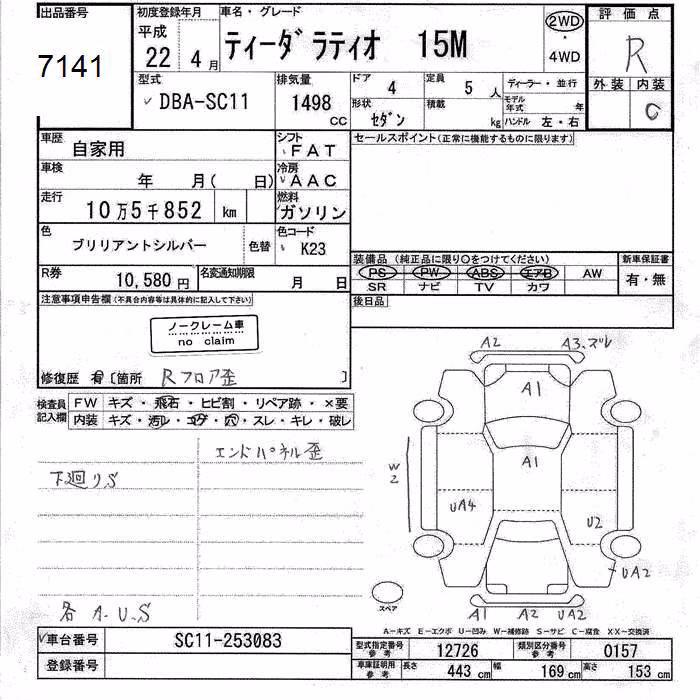 出品番号
7141
初度登録年月
平成
22 4 月
車名・グレード
ティーダ ラティオ 15M
2WD
・
4WD
評価点
R
外装 内装
C
型式
DBA-SC11
排気量
1498 CC
ドア 4
定員 5 人
形状 セダン
積載 kg
ディーラー・並行
モデル年式 年
ハンドル 左・右
車歴 自家用
シフト FAT
セールスポイント(正常に機能するものに限ります)
車検 年 月( 日)
冷房 AAC
走行 10万5千852 km
燃料 ガソリン
色 ブリリアントシルバー 色替
色コード K23
装備品(純正品に限り○をつけてください)
新車保証書
PS PW ABS エアB AW
有・無
SR ナビ TV カワ
R券 10,580 円
名変通知期限 月 日
後日品
注意事項申告欄(不具合内容等は具体的に記入して下さい)
ノークレーム車
no claim
修復歴 有 〔箇所 Rフロア歪 〕
検査員記入欄
FW キズ・飛石・ヒビ割・リペア跡・×要
内装 キズ・汚レ・コゲ・穴・スレ・キレ・破レ
エンドパネル歪
下廻りS
各 A.U.S
A2 A3.ズレ
A1
A1
W2
UA4
U2
UA2
スペア
A1 A2 UA2
A-キズ E-エクボ U-凹み W-補修跡 S-サビ C-腐食 XX-交換済
車台番号 SC11-253083
登録番号
型式指定番号 参考 12726
類別区分番号 参考 0157
車庫証明用 参考 長さ 443 cm 幅 169 cm 高さ 153 cm